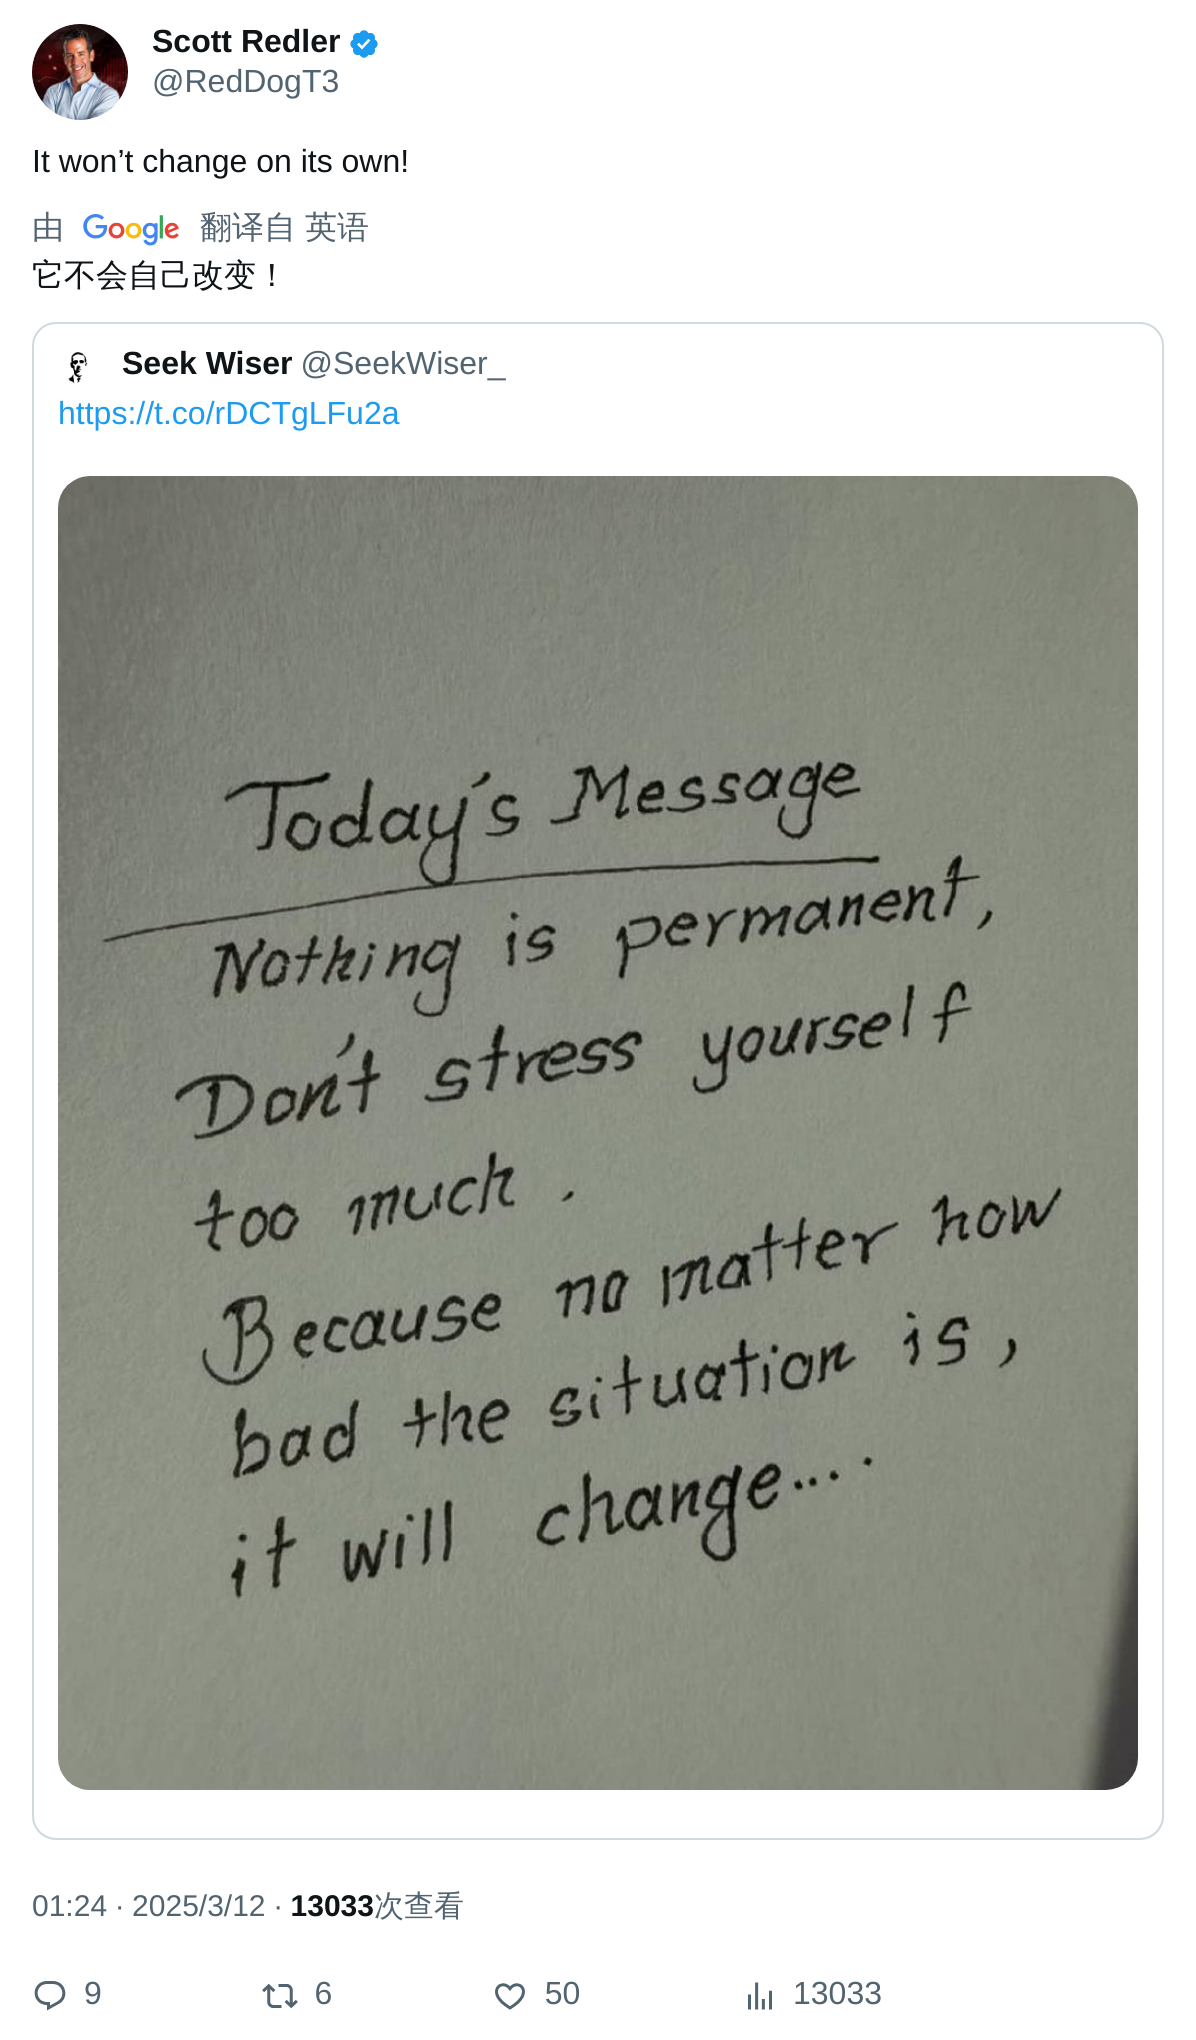 Scott Redler
@RedDogT3
It won’t change on its own!
由 Google 翻译自 英语
它不会自己改变！
Seek Wiser @SeekWiser_
https://t.co/rDCTgLFu2a
Today's Message
Nothing is permanent,
Don't stress yourself
too much .
Because no matter how
bad the situation is,
it will change....
01:24 · 2025/3/12 · 13033次查看
9 6 50 13033